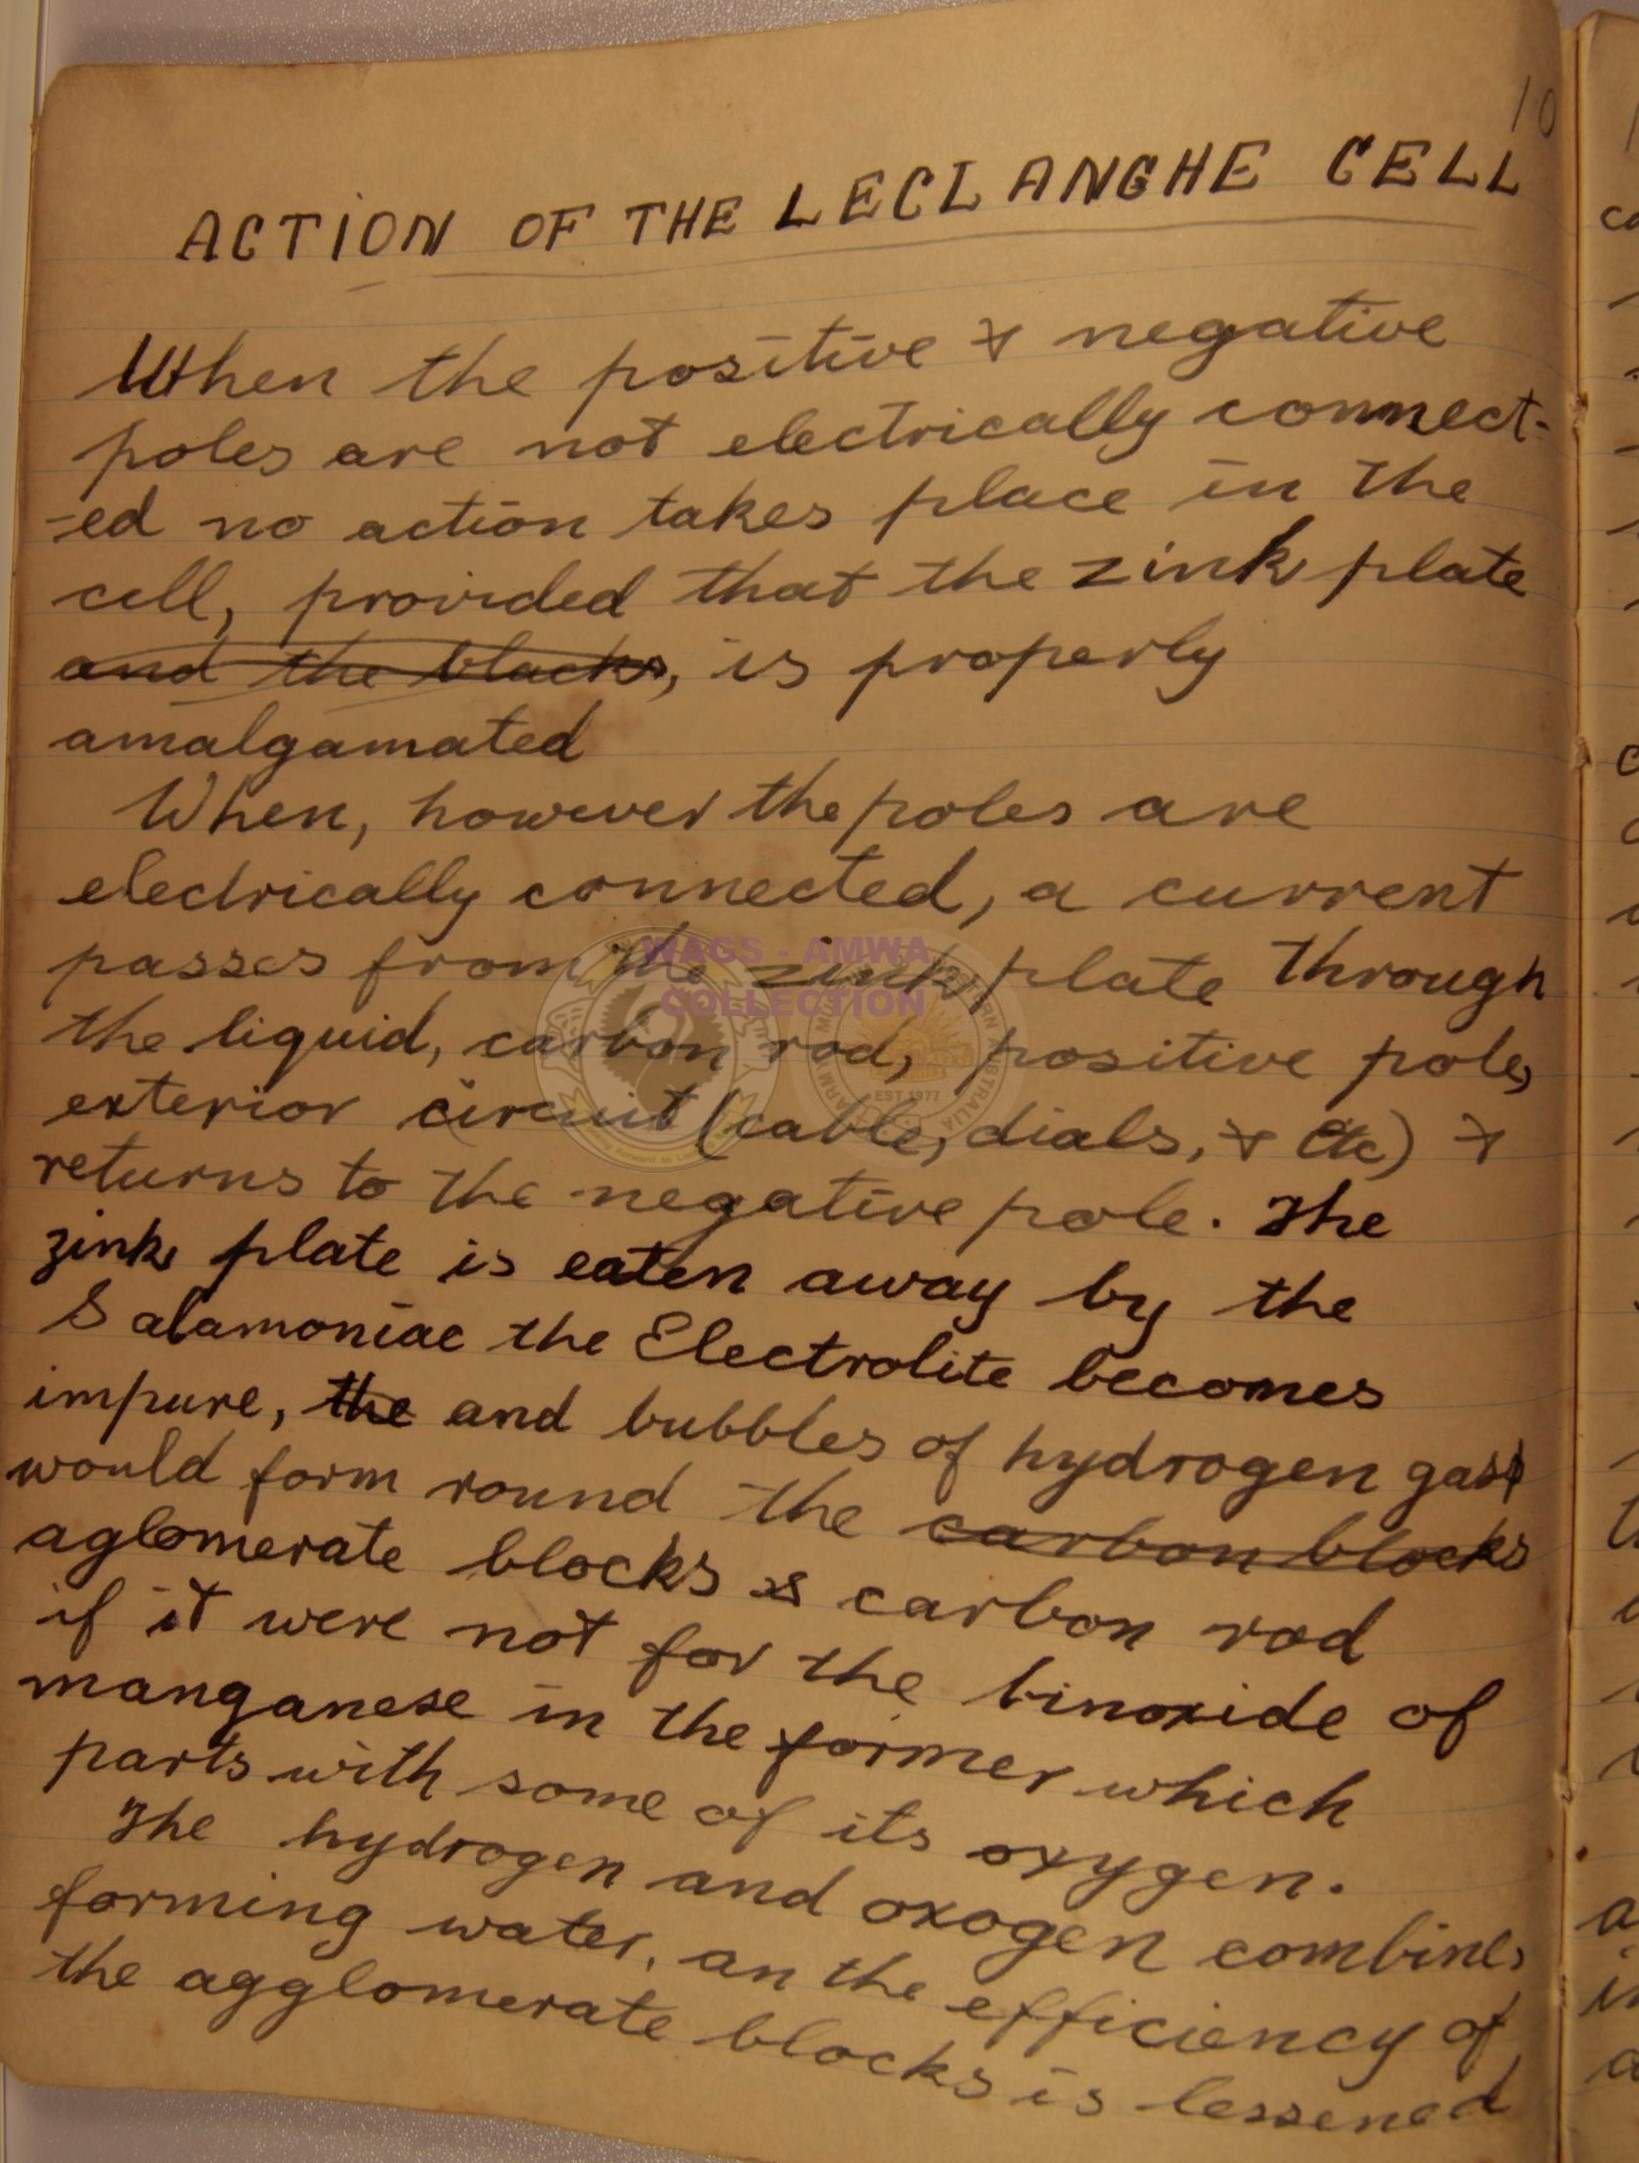 10
ACTION OF THE LECLANGHE CELL
When the positive & negative
poles are not electrically connect-
-ed no action takes place in the
cell, provided that the zink plate
and the blacks, is properly
amalgamated
When, however the poles are
electrically connected, a current
passes from the zink plate through
the liquid, carbon rod, positive pole,
exterior circuit (cable, dials, & etc) &
returns to the negative pole. The
zink plate is eaten away by the
Salamoniac the Electrolite becomes
impure, the and bubbles of hydrogen gas
would form round the carbon blocks
aglomerate blocks & carbon rod
if it were not for the binoxide of
manganese in the former which
parts with some of its oxygen.
The hydrogen and oxogen combines
forming water, an the efficiency of
the agglomerate blocks is lessened
WAGS - AMWA
COLLECTION
EST 1977